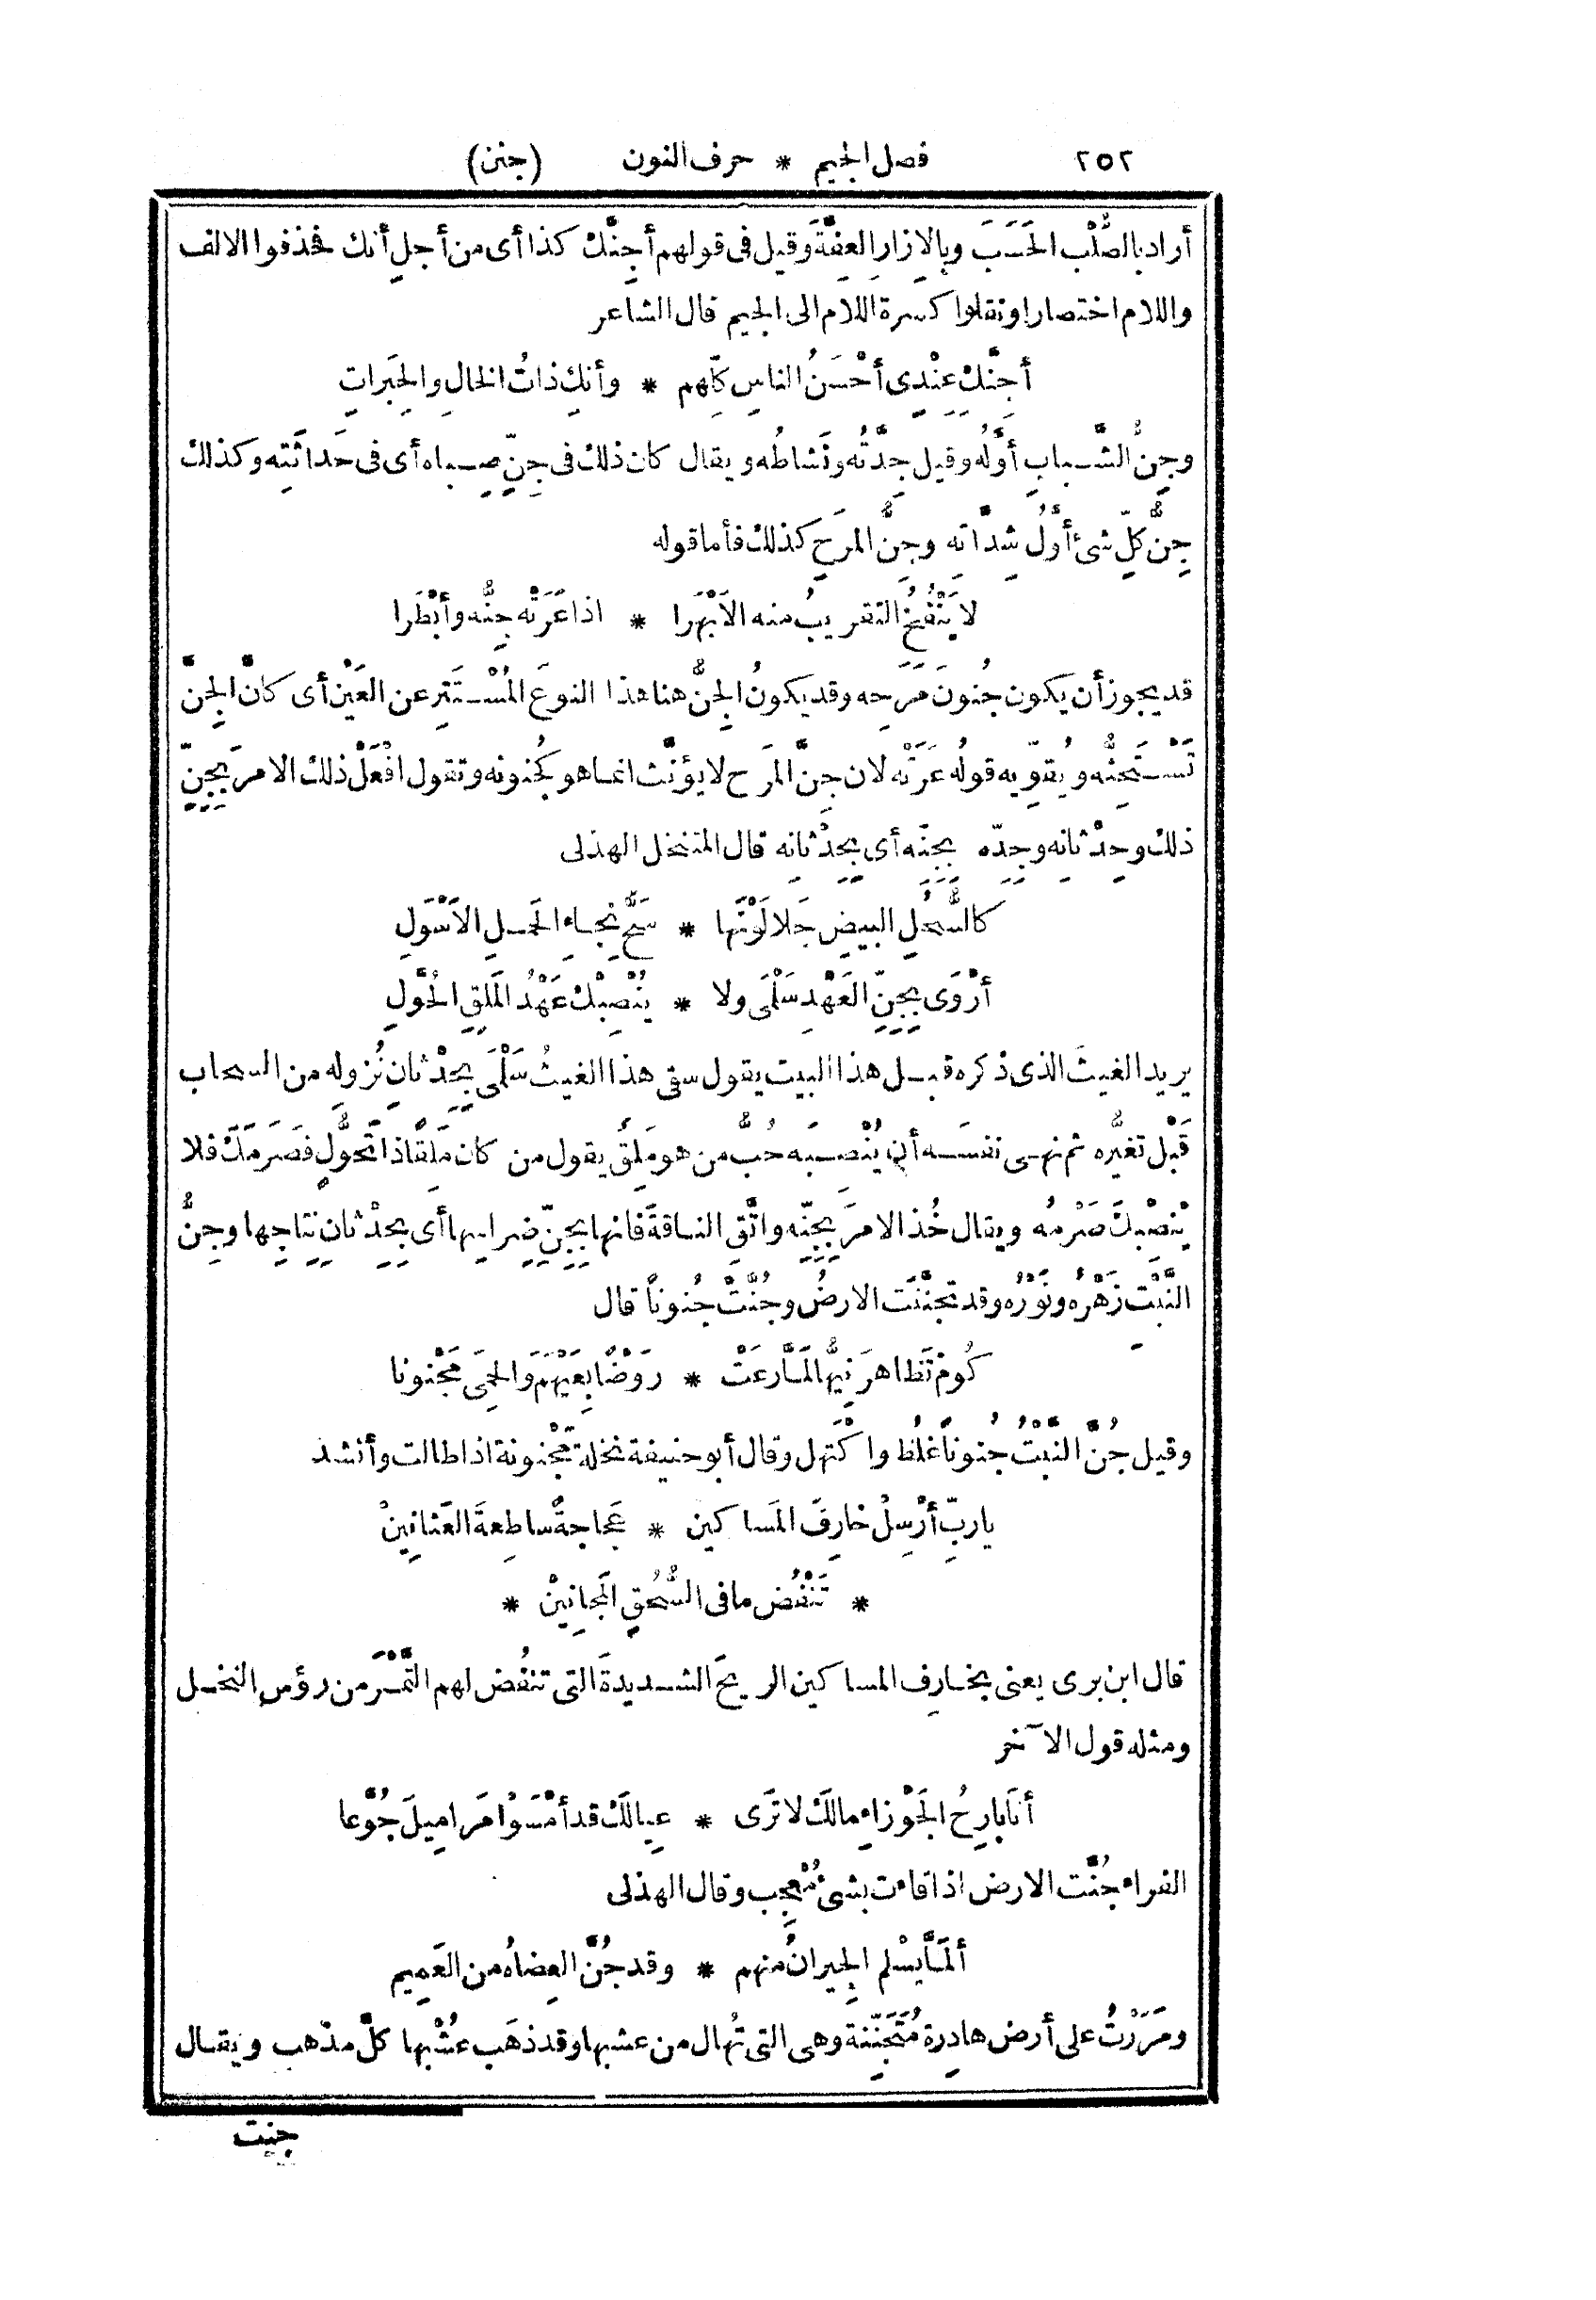 ٢٥٢ فصل الجيم * حرف النون (جنن)
أراد بالصُّلْب الحَسَبَ وبالإِزارِ العِفَّةَ وقيل فى قولهم أَجِنَّكَ كذا أى من أجلِ أنك فحذفوا الالف
واللام اختصارا ونقلوا كسرة اللام الى الجيم قال الشاعر
أَجِنَّكِ عِنْدِى أَحْسَنُ الناسِ كلِّهم * وأنكِ ذاتُ الخالِ والحِبَراتِ
وجِنُّ الشَّبابِ أَوَّلُه وقيل جِدَّتُه ونَشاطُه ويقال كان ذلك فى جِنِّ صِباه أى فى حَداثَتِه وكذلك
جِنُّ كلِّ شئ أَوَّلُ شِدّاته وجِنُّ المرَحِ كذلك فأما قوله
لا يَنْفُخُ التقريبُ منه الاَبْهَرا * اذا عَرَتْه جِنُّه وأَبْطَرا
قد يجوز أن يكون جُنونَ مَرَحِه وقد يكونُ الجِنُّ هنا هذا النوعَ المُسْتَتِر عن العَيْن أى كأنَّ الجِنَّ
تَسْتَحِثُّه ويُقوِّيه قولُه عَرَتْه لان جنَّ المرَح لا يؤنَّث انما هو كجُنونه وتقول افْعَلْ ذلك الامرَ بِجِنِّ
ذلك وحِدْثانه وجِدِّه بجِنِّه أى بِحِدْثانِه قال المتنخل الهذلى
كالسُّحُلِ البيضِ جَلا لَوْنَها * سَحُّ نِجاءِ الحَمَلِ الاَسْوَلِ
أَرْوَى بِجِنِّ العَهْدِ سَلْمَى ولا * يُنْصِبْكَ عَهْدُ المَلِقِ الحُوَّلِ
يريد الغيثَ الذى ذكره قبل هذا البيت يقول سقى هذا الغيثُ سَلْمَى بِحِدْثانِ نُزولِه من السحاب
قَبْل تغيُّره ثم نهى نفسَه أن يُنْصِبَه حُبُّ من هو مَلِقٌ يقول من كان مَلِقًا ذا تَحوُّلٍ فَصَرَمَكَ فلا
يُنْصِبْكَ صَرْمُه ويقال خُذ الامرَ بِجِنِّه واتَّقِ الناقةَ فانها بِجِنِّ ضِرابِها أى بِحِدْثانِ نِتاجِها وجِنُّ
النَّبْتِ زَهْرُه ونَوْرُه وقد تجنَّنَت الارضُ وجُنَّتْ جُنوناً قال
كُوم تَظاهرَ نِيُّها لمّا رعَتْ * رَوْضًا بِعَيْهَمَ والحِمَى مَجْنونا
وقيل جُنَّ النَّبْتُ جُنوناً غلُظ واكْتَهل وقال أبو حنيفة نخلة مَجْنونة اذا طالت وأنشد
ياربِّ أَرْسِلْ خارِفَ المَساكينْ * عَجاجةً ساطِعةَ العَثانِينْ
* تَنْفُض ما فى السُّحُقِ المَجانِينْ *
قال ابن برى يعنى بخارِف المساكين الريحَ الشديدةَ التى تنفُض لهم التَّمْرَ من رؤس النخل
ومثله قول الآخر
أنَا بارِحُ الجَوْزاءِ مالَك لا تَرَى * عِيالَكَ قد أَمْسَوْا مَرامِيلَ جُوَّعا
الفراء جُنَّت الارض اذا قاءت بشئ مُعْجِب وقال الهذلى
ألمّا يَسْلم الجِيرانُ منهم * وقد جُنَّ العِضاهُ من العَمِيم
ومَرَرْتُ على أرض هادِرة مُتَجَنِّنة وهى التى تُهال من عشبها وقد ذهَب عُشْبها كلَّ مذهب ويقال
جنت